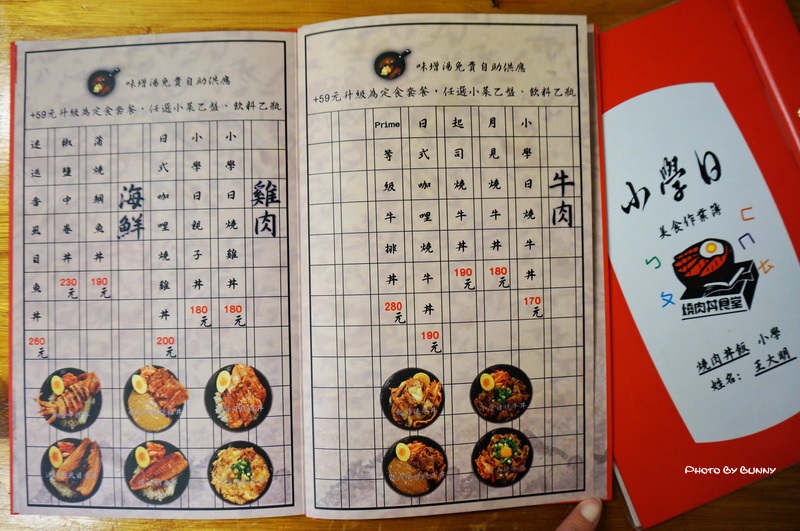 味增湯免費自助供應
+59元升級為定食套餐，任選小菜乙盤、飲料乙瓶
雞肉
小學日燒雞丼 180元
小學日親子丼 180元
日式咖哩燒雞丼 200元
海鮮
蒲燒鯛魚丼 190元
椒鹽中卷丼 230元
迷迭香虱目魚丼 260元
味增湯免費自助供應
+59元升級為定食套餐，任選小菜乙盤、飲料乙瓶
牛肉
小學日燒牛丼 170元
月見燒牛丼 180元
起司燒牛丼 190元
日式咖哩燒牛丼 190元
Prime等級牛排丼 280元
小學日
美食作業簿
ㄈ
ㄅ ㄇ
ㄆ
燒肉丼食堂
燒肉丼飯 小學
姓名：王大明
Photo By Bunny